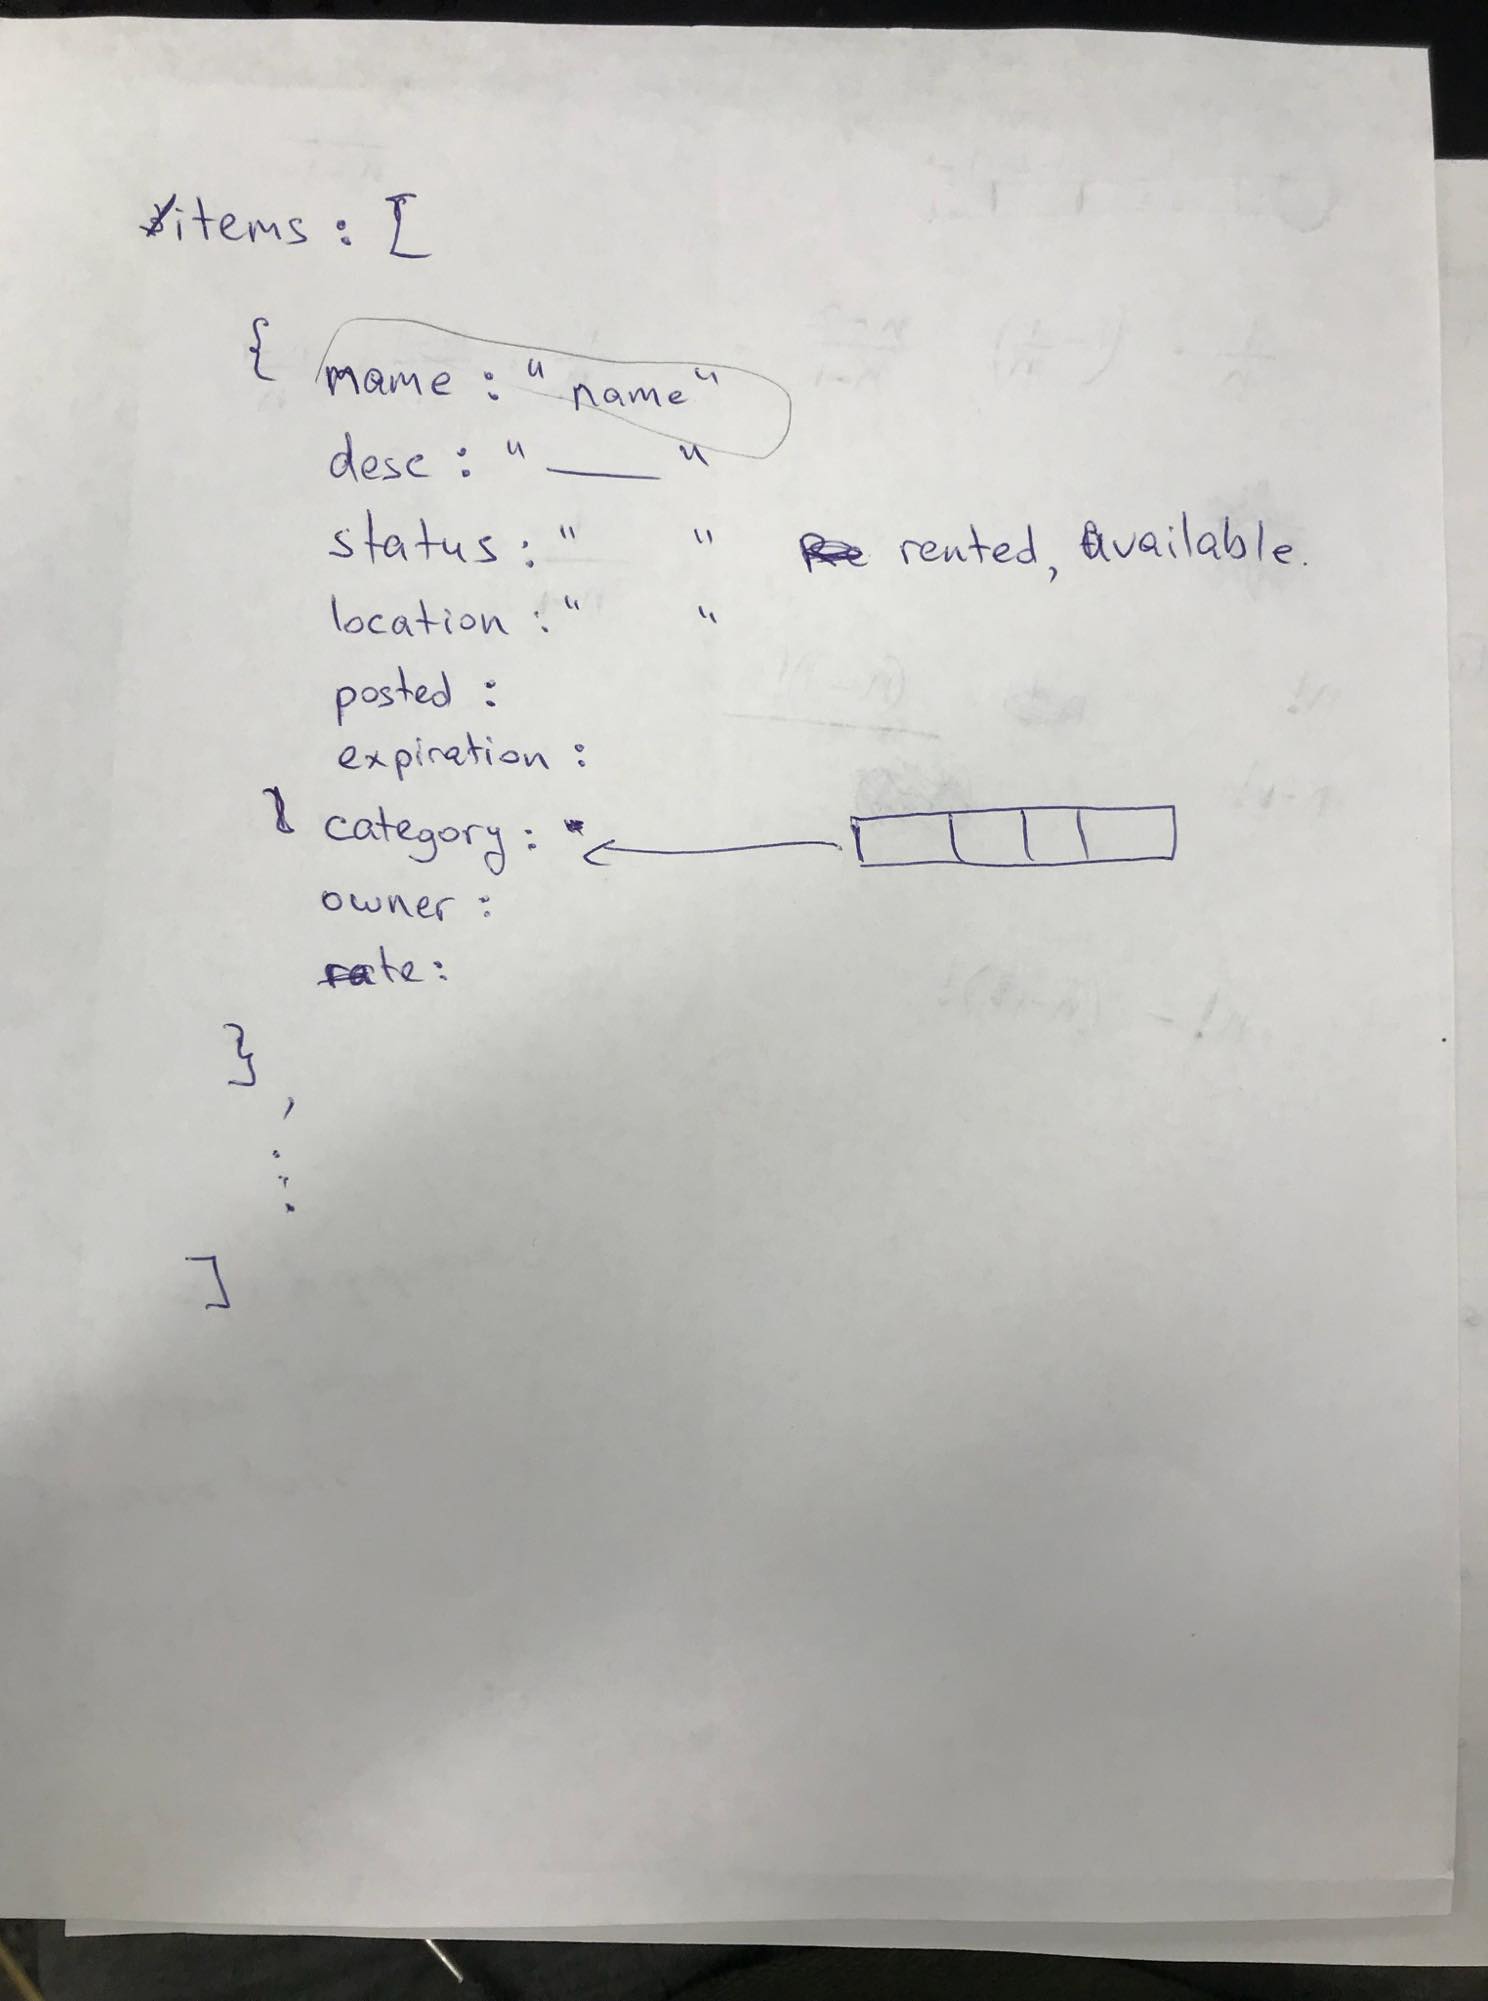 items : [
{ name : "name"
desc : " ____ "
status : " " rented, Available.
location : " "
posted :
expiration :
category :
owner :
rate :
}
,
]